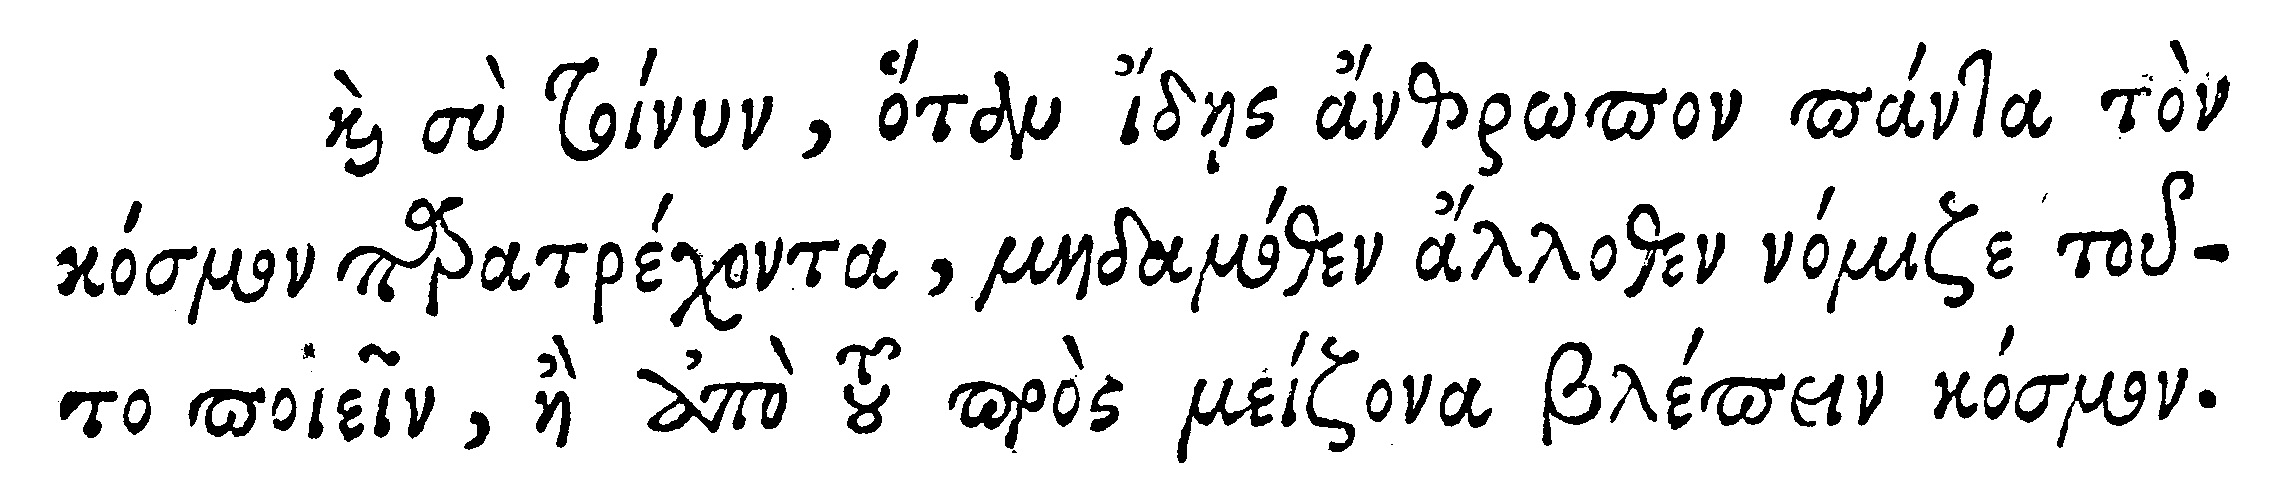 καὶ σὺ τοίνυν, ὅταν ἴδῃς ἄνθρωπον πάντα τὸν
κόσμον παρατρέχοντα, μηδαμόθεν ἄλλοθεν νόμιζε τοῦ-
το ποιεῖν, ἢ ἀπὸ τοῦ πρὸς μείζονα βλέπειν κόσμον.